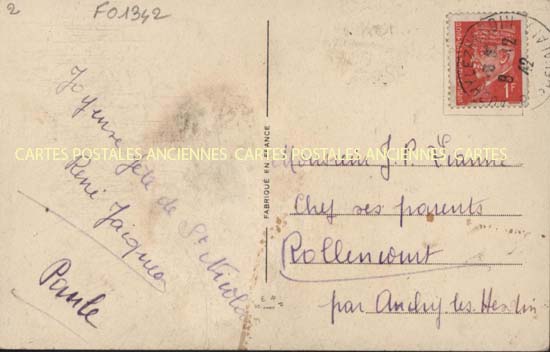 2
FO1342
Joyeuse fête de St Nicolas
René Jacqueline
Paule
CARTES POSTALES ANCIENNES CARTES POSTALES ANCIENNES CARTES POSTALES ANCIENNES
FABRIQUÉ EN FRANCE
1F
8 12
42
Monsieur J.P.
Chez ses parents
Rollencourt
par Auchy les Hesdin